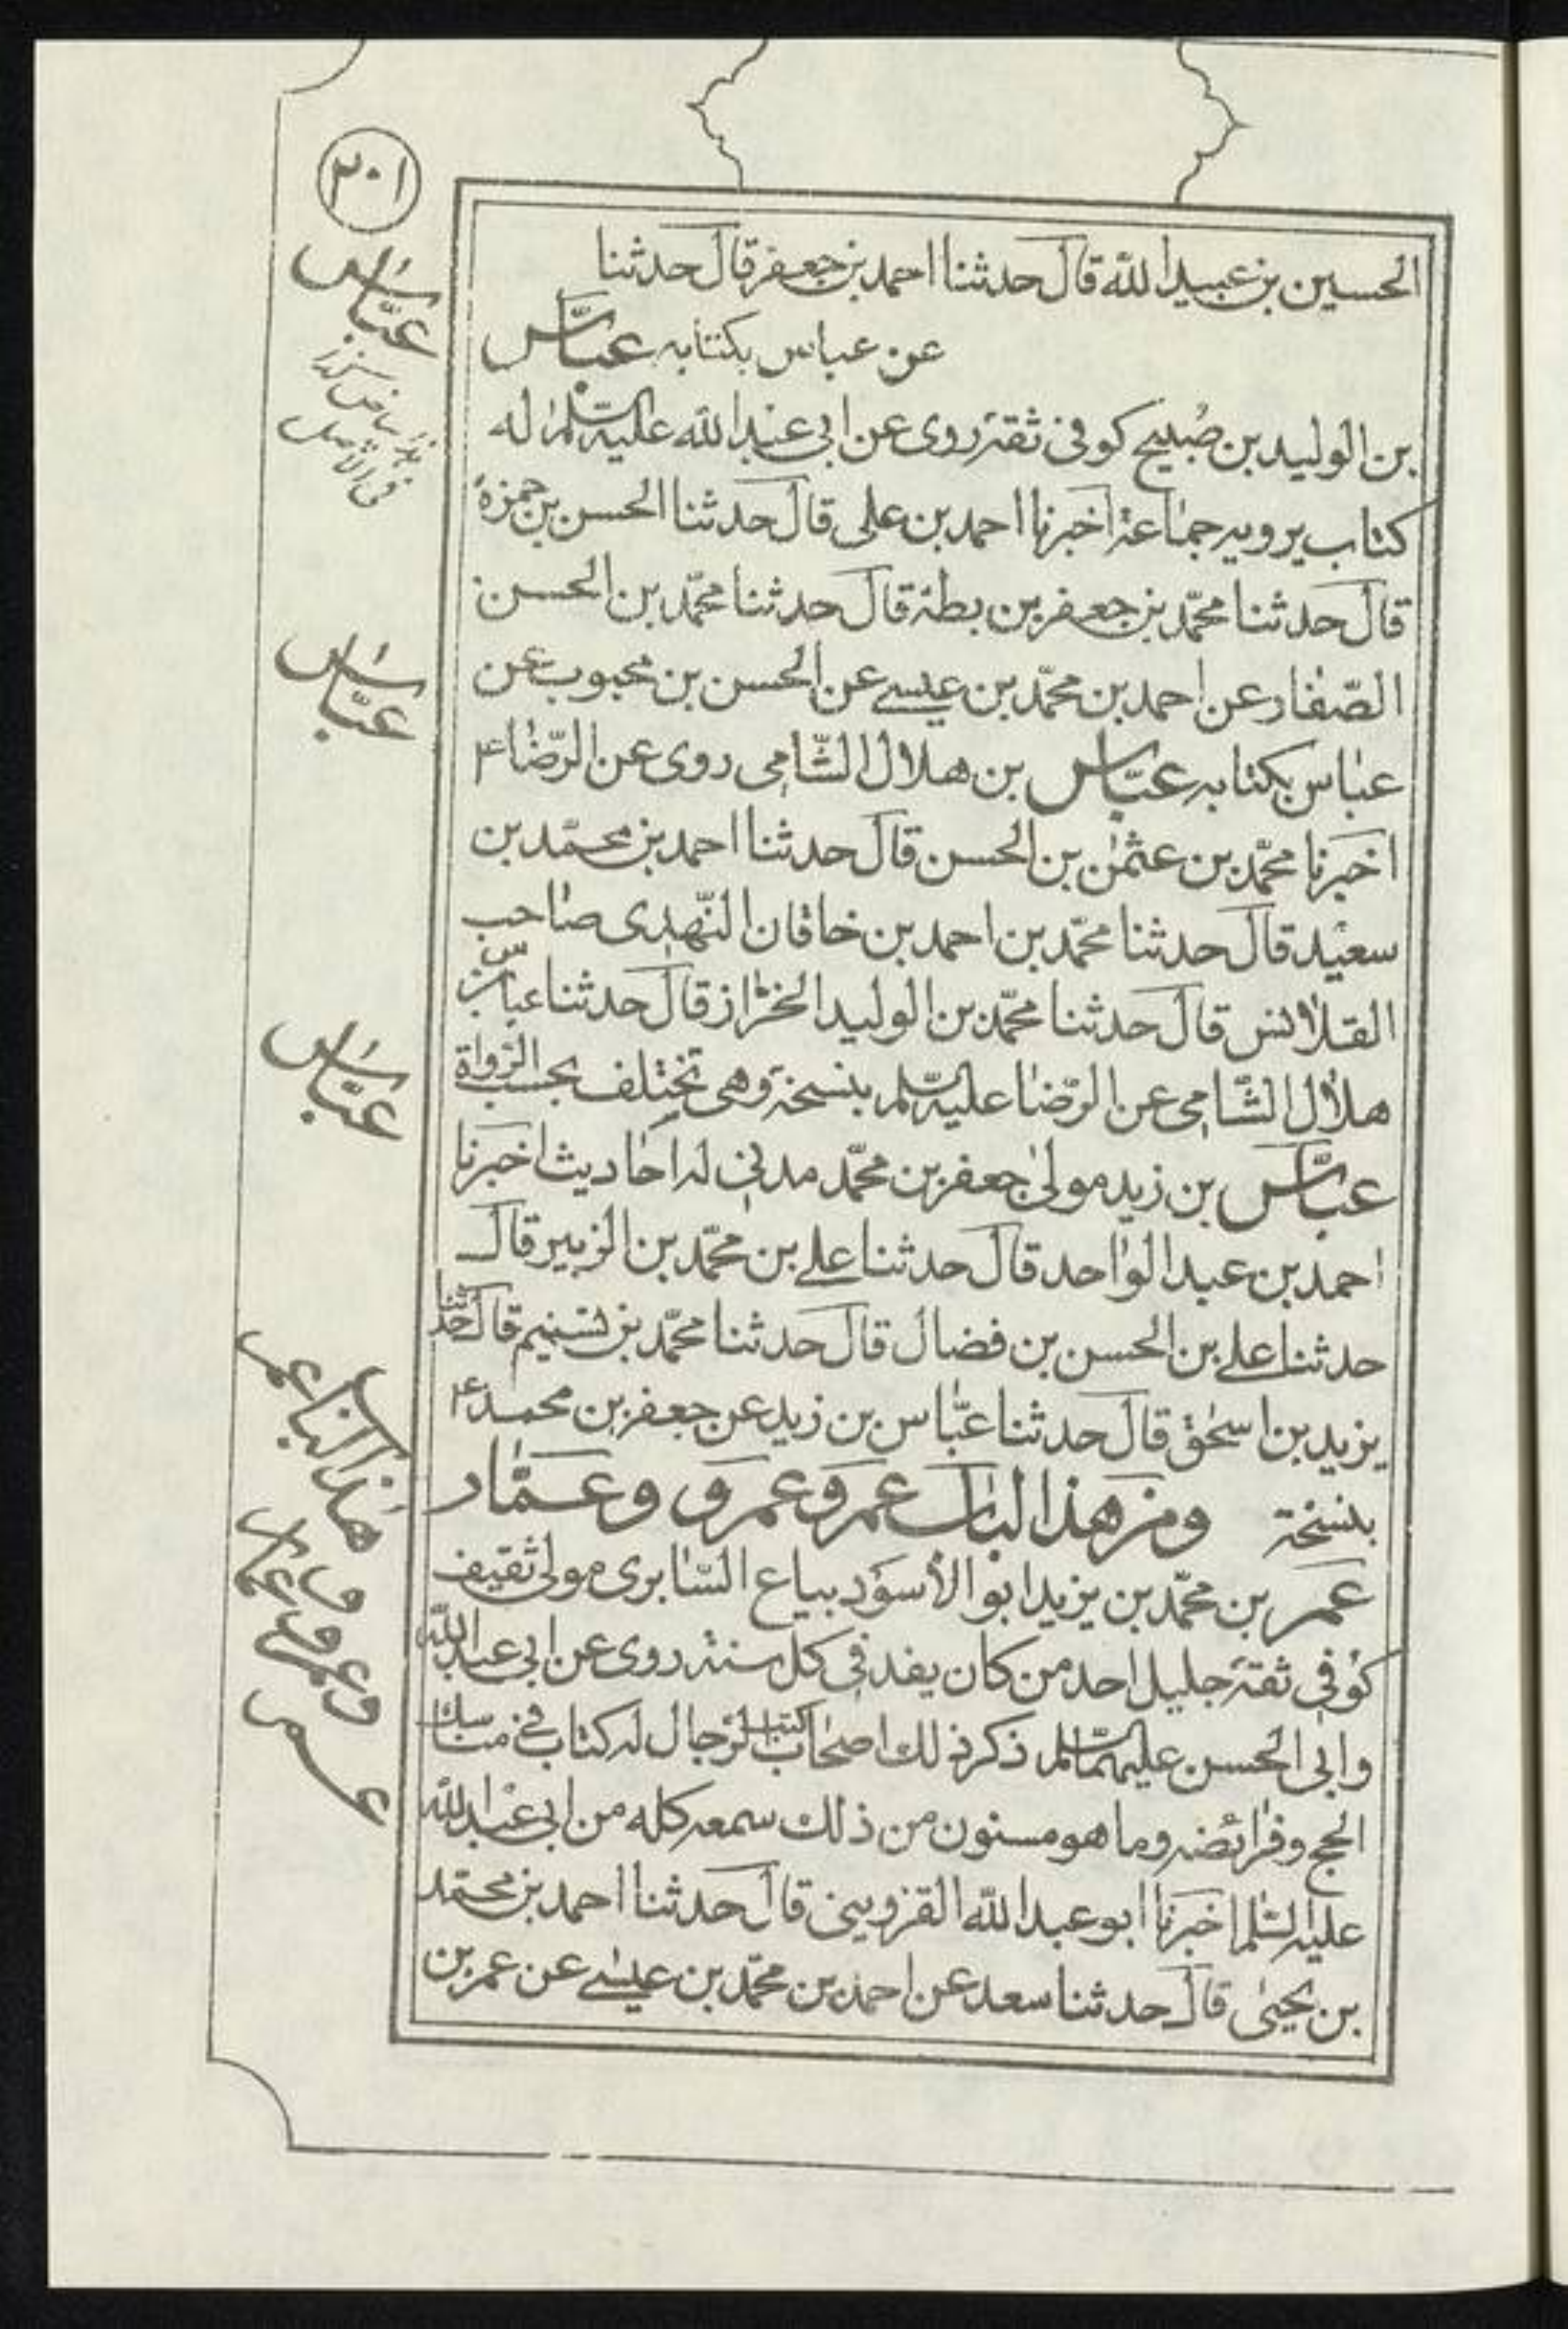 ٢٠١
الحسين بن عبيد الله قال حدثنا احمد بن جعفر قال حدثنا
عن عباس بكتابه عبّاس
بن الوليد بن صُبيح كوفى ثقة روى عن ابى عبد الله عليه السّلم له
كتاب يرويه جماعة اخبرنا احمد بن على قال حدثنا الحسن بن حمزة
قال حدثنا محمّد بن جعفر بن بطة قال حدثنا محمّد بن الحسن
الصّفار عن احمد بن محمّد بن عيسى عن الحسن بن محبوب عن
عباس بكتابه عبّاس بن هلال الشّامى روى عن الرّضا ع
اخبرنا محمّد بن عثمن بن الحسن قال حدثنا احمد بن محمّد بن
سعيد قال حدثنا محمّد بن احمد بن خاقان النّهدى صاحب
القلانس قال حدثنا محمّد بن الوليد الخزاز قال حدثنا عباس بن
هلال الشّامى عن الرّضا عليه السّلم بنسخة وهى تختلف بحسب الرّواة
عبّاس بن زيد مولى جعفر بن محمّد مدنى له احاديث اخبرنا
احمد بن عبد الواحد قال حدثنا على بن محمّد بن الزبير قال
حدثنا على بن الحسن بن فضال قال حدثنا محمّد بن تسنيم قال حدّثنا
يزيد بن اسحق قال حدثنا عبّاس بن زيد عن جعفر بن محمد ع
بنسخة ومن هذا الباب عمر وعمرو وعمّار
عمر بن محمّد بن يزيد ابو الأسود بياع السّابرى مولى ثقيف
كوفى ثقة جليل احد من كان يفد فى كل سنة روى عن ابى عبد الله
وابى الحسن عليهما السّلم ذكر ذلك اصحاب كتب الرّجال له كتاب فى مناسك
الحج وفرائضه وما هو مسنون من ذلك سمعه كله من ابى عبد الله
عليه السّلم اخبرنا ابو عبد الله القزوينى قال حدثنا احمد بن محمّد
بن يحيى قال حدثنا سعد عن احمد بن محمّد بن عيسى عن عمر بن
عبّاس
عبّاس
عبّاس